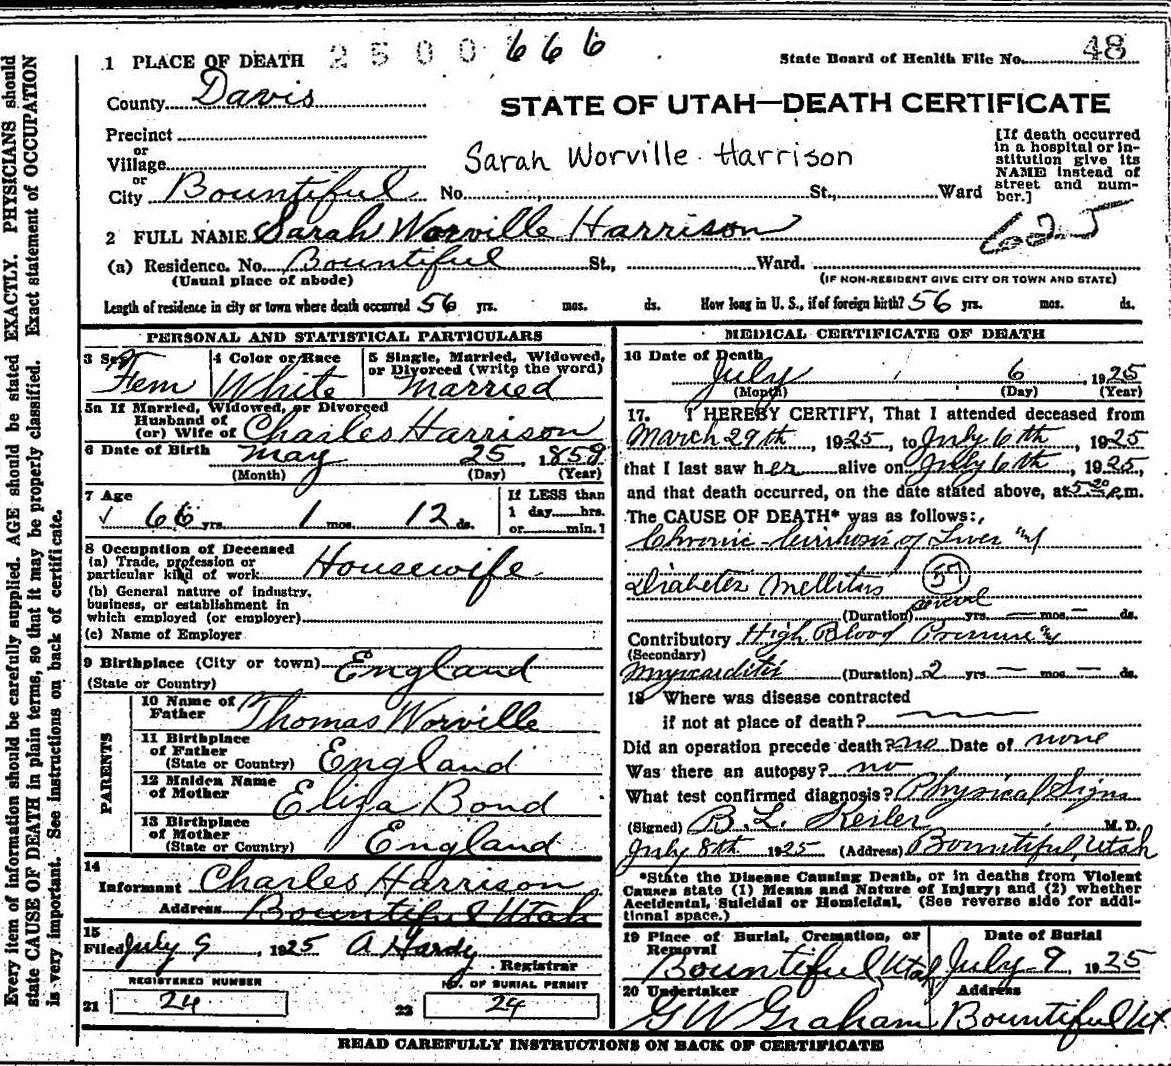 1 PLACE OF DEATH 2500666
State Board of Health File No. 48
County Davis
STATE OF UTAH—DEATH CERTIFICATE
Precinct
or
Village
or
City Bountiful No. St., Ward
Sarah Worville Harrison
[If death occurred
in a hospital or in-
stitution give its
NAME instead of
street and num-
ber.]
625
2 FULL NAME Sarah Worville Harrison
(a) Residence. No. Bountiful St., Ward.
(Usual place of abode) (IF NON-RESIDENT GIVE CITY OR TOWN AND STATE)
Length of residence in city or town where death occurred 56 yrs. mos. ds. How long in U. S., if of foreign birth? 56 yrs. mos. ds.
PERSONAL AND STATISTICAL PARTICULARS
3 Sex Fem
4 Color or Race White
5 Single, Married, Widowed,
or Divorced (write the word)
Married
5a If Married, Widowed, or Divorced
Husband of
(or) Wife of Charles Harrison
6 Date of Birth May 25, 1859
(Month) (Day) (Year)
7 Age
66 yrs. 1 mos. 12 ds.
If LESS than
1 day hrs.
or min.?
8 Occupation of Deceased
(a) Trade, profession or
particular kind of work Housewife
(b) General nature of industry,
business, or establishment in
which employed (or employer)
(c) Name of Employer
9 Birthplace (City or town) England
(State or Country)
PARENTS
10 Name of
Father Thomas Worville
11 Birthplace
of Father
(State or Country) England
12 Maiden Name
of Mother Eliza Bond
13 Birthplace
of Mother
(State or Country) England
14
Informant Charles Harrison
Address Bountiful Utah
15
Filed July 9, 1925 A Hardy
Registrar
REGISTERED NUMBER
21 24
NO. OF BURIAL PERMIT
22 24
MEDICAL CERTIFICATE OF DEATH
16 Date of Death
July 6, 1925
(Month) (Day) (Year)
17. I HEREBY CERTIFY, That I attended deceased from
March 29th, 1925, to July 6th, 1925
that I last saw her alive on July 6th, 1925,
and that death occurred, on the date stated above, at 5 20 p.m.
The CAUSE OF DEATH* was as follows:
Chronic Cirrhosis of Liver
Diabetes Mellitus 57
(Duration) several yrs. — mos. — ds.
Contributory High Blood Pressure
(Secondary)
Myocarditis (Duration) 2 yrs. — mos. — ds.
18 Where was disease contracted
if not at place of death?
Did an operation precede death? no Date of none
Was there an autopsy? no
What test confirmed diagnosis? Physical Signs
(Signed) B. L. Kesler M. D.
July 8th 1925 (Address) Bountiful, Utah
*State the Disease Causing Death, or in deaths from Violent
Causes state (1) Means and Nature of Injury; and (2) whether
Accidental, Suicidal or Homicidal. (See reverse side for addi-
tional space.)
19 Place of Burial, Cremation, or
Removal
Bountiful, Utah
Date of Burial
July 9, 1925
20 Undertaker
G W Graham
Address
Bountiful Ut.
READ CAREFULLY INSTRUCTIONS ON BACK OF CERTIFICATE
Every item of information should be carefully supplied. AGE should be stated EXACTLY. PHYSICIANS should
state CAUSE OF DEATH in plain terms, so that it may be properly classified. Exact statement of OCCUPATION
is very important. See instructions on back of certificate.